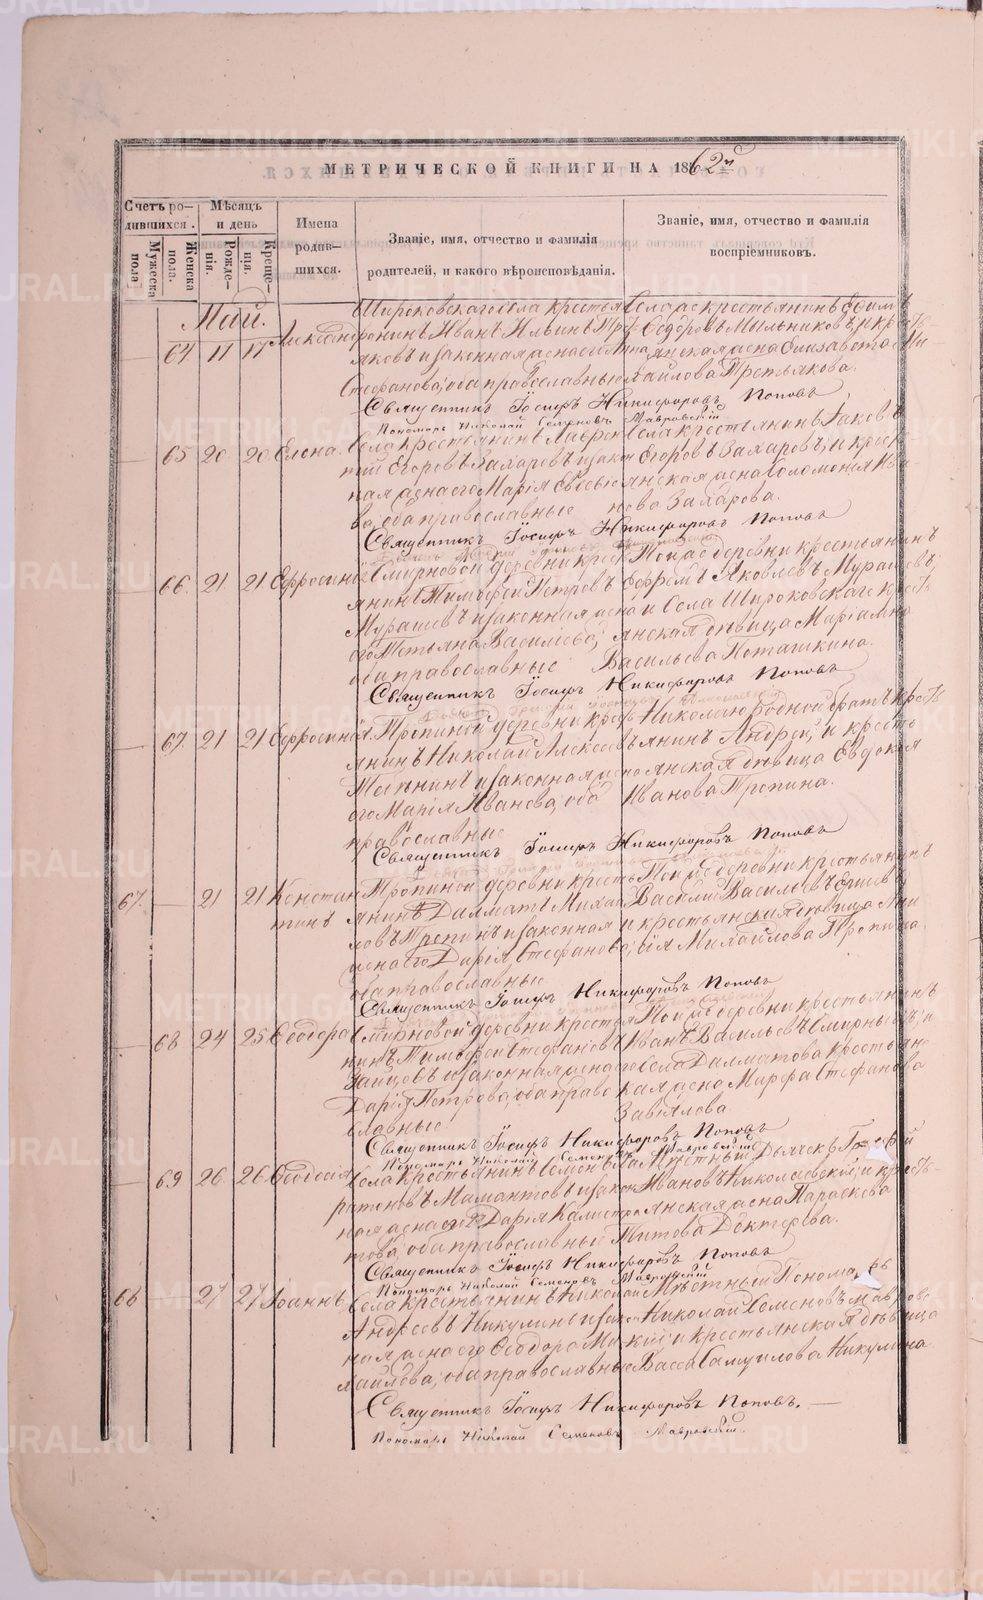 МЕТРИЧЕСКОЙ КНИГИ НА 1862й
Счетъ ро-
дившихся.
Мужеска
пола.
Женска
пола.
Мѣсяцъ
и день
Рожде-
нія.
Креще-
нія.
Имена
родив-
шихся.
Званіе, имя, отчество и фамилія
родителей, и какого вѣроисповѣданія.
Званіе, имя, отчество и фамилія
воспріемниковъ.
Май.
— 64 11 17
Широковскаго села крестья
нинъ Иванъ Ильинъ Трет
яковъ и законная жена его Анна
Стефанова, оба православные
Села крестьянинъ Ефимъ
Федоровъ Мыльниковъ, и крестъ
янская жена Елизавета Ми
хайлова Третьякова.
Священникъ Іосифъ Никифоровъ Поповъ
Пономарь Николай Семеновъ Мавровскій
— 65 20 20 Елена.
Села крестьянинъ Лаврен
тій Егоровъ Захаровъ и закон
ная жена его Марія Евсѣье
ва, оба православные
Села крестьянинъ Іаковъ
Егоровъ Захаровъ, и крест
янская жена Соломонія Ива
нова Захарова.
Священникъ Іосифъ Никифоровъ Поповъ
— 66 21 21 Ефросинія
Смирновой деревни крест
янинъ Тимофей Петровъ
Мурашевъ и законная жена
его Татьяна Васильева,
оба православные
Той же деревни крестьянинъ
Ефремъ Яковлевъ Мурашевъ,
и Села Широковскаго крестъ
янская дѣвица Маріамна
Васильева Поташкина.
Священникъ Іосифъ Никифоровъ Поповъ
— 67. 21 21 Ефросинія
Тропиной деревни кресть
янинъ Николай Алексеевъ
и законная жена
его Марія Иванова, оба
православные
Николаю родной братъ крестъ
янинъ Андрей, и кресть
янская дѣвица Евдокія
Иванова Тропина.
Священникъ Іосифъ Никифоровъ Поповъ
67. — 21 21 Констан
тинъ
Тропиной деревни кресть
янинъ Далматъ Михаи
ловъ Тропинъ и законная
жена его Дарія Стефанова,
оба православные
Той же деревни крестьянинъ
Василій Васильевъ
и крестьянская дѣвица Ани
сія Михайлова Тропина.
Священникъ Іосифъ Никифоровъ Поповъ
— 68 24 25 Феодора
Смирновой деревни крестья
нинъ Тимофей Стефановъ
Зайцовъ и законная жена его
Дарія Петрова, оба право
славные
Той же деревни крестьянинъ
Иванъ Васильевъ Смирныхъ, и
села Далматова крестьян
ская жена Марфа Стефанова
Завьялова
Священникъ Іосифъ Никифоровъ Поповъ
Пономарь Николай Семеновъ Мавровскій
— 69 26 26 Феодосія
Села крестьянинъ Семенъ
Мамонтовъ и закон
ная жена его Дарія Калистра
това, оба православные
Мѣстный Дьячекъ
Ивановъ Николаевскій, и крестъ
янская жена Параскева
Титова Дектерева.
Священникъ Іосифъ Никифоровъ Поповъ
Пономарь Николай Семеновъ Мавровскій
68 27 27 Іоаннъ
Села крестьянинъ Николай
Андреевъ Никулинъ и закон
ная жена его Феодора Ми
хайлова, оба православные
Мѣстный Пономарь
Николай Семеновъ Мавровс
кій и крестьянская дѣвица
Васса Самуилова Никулина.
Священникъ Іосифъ Никифоровъ Поповъ. —
Пономарь Николай Семеновъ Мавровскій.
METRIKI.GASO-URAL.RU